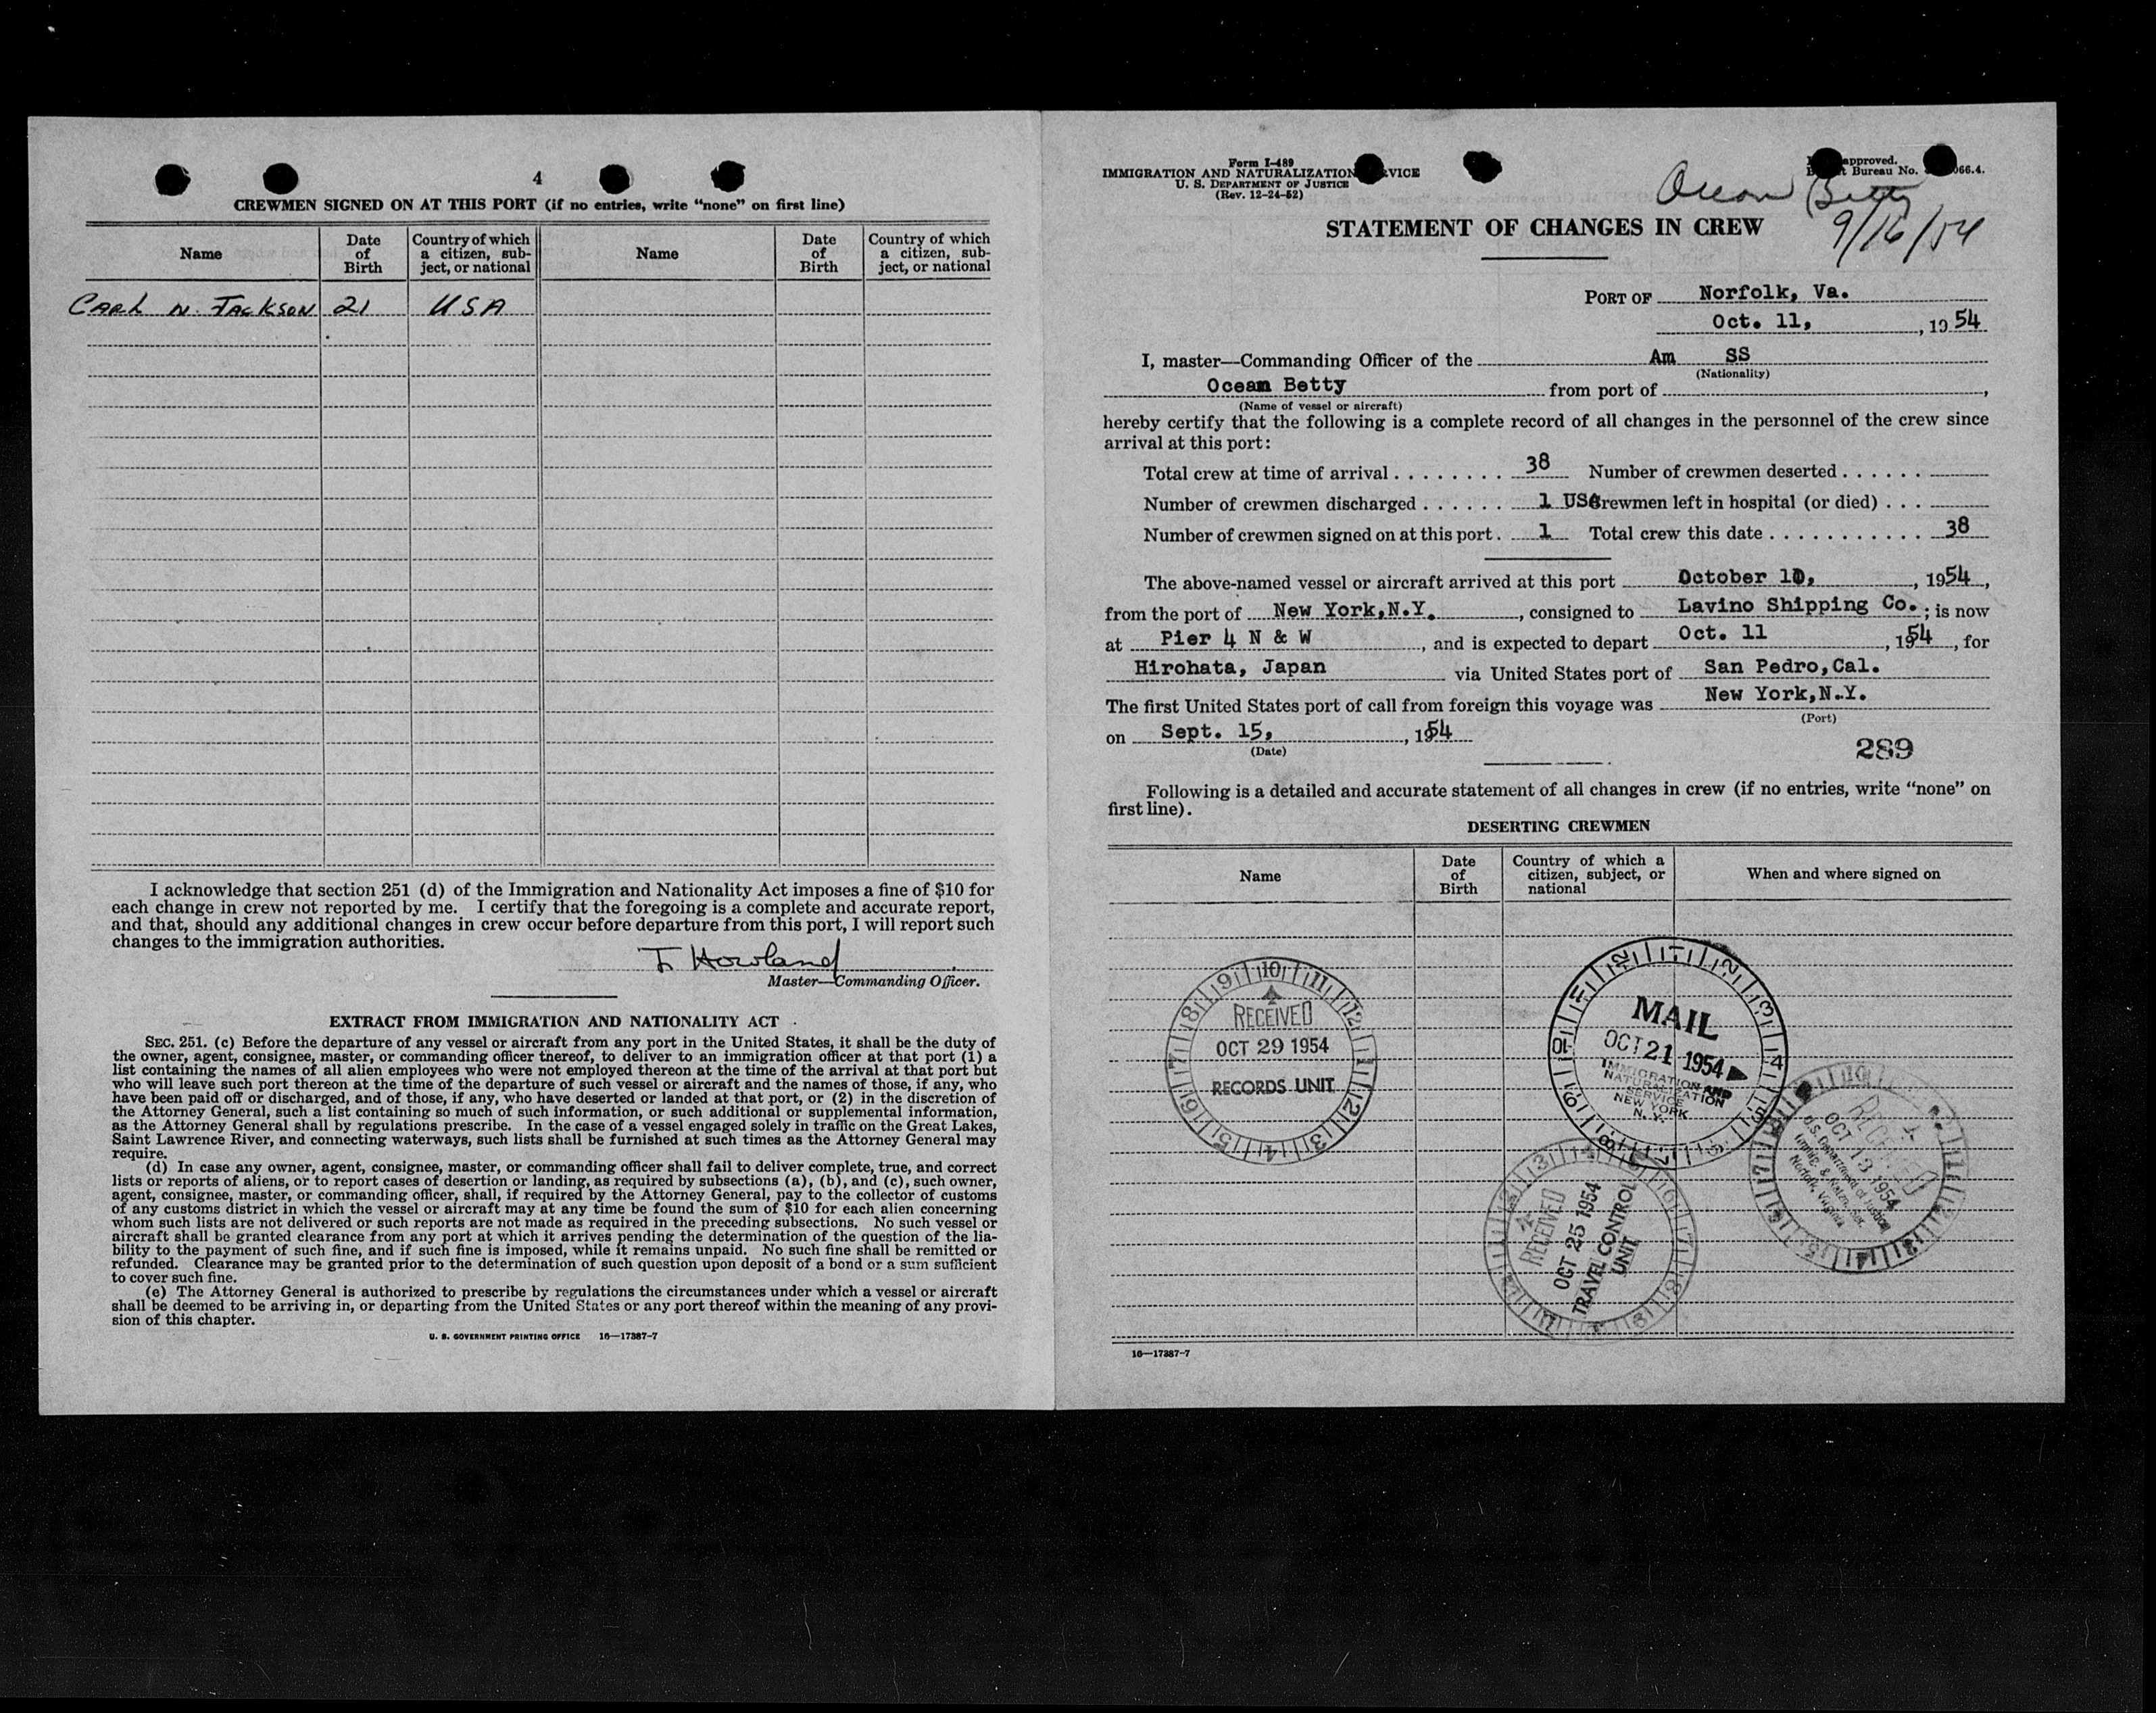 4
CREWMEN SIGNED ON AT THIS PORT (if no entries, write “none” on first line)
Name
Date of Birth
Country of which a citizen, subject, or national
Name
Date of Birth
Country of which a citizen, subject, or national
CARL N. JACKSON 21 USA
I acknowledge that section 251 (d) of the Immigration and Nationality Act imposes a fine of $10 for
each change in crew not reported by me. I certify that the foregoing is a complete and accurate report,
and that, should any additional changes in crew occur before departure from this port, I will report such
changes to the immigration authorities.
Howland
Master—Commanding Officer.
EXTRACT FROM IMMIGRATION AND NATIONALITY ACT
SEC. 251. (c) Before the departure of any vessel or aircraft from any port in the United States, it shall be the duty of
the owner, agent, consignee, master, or commanding officer thereof, to deliver to an immigration officer at that port (1) a
list containing the names of all alien employees who were not employed thereon at the time of the arrival at that port but
who will leave such port thereon at the time of the departure of such vessel or aircraft and the names of those, if any, who
have been paid off or discharged, and of those, if any, who have deserted or landed at that port, or (2) in the discretion of
the Attorney General, such a list containing so much of such information, or such additional or supplemental information,
as the Attorney General shall by regulations prescribe. In the case of a vessel engaged solely in traffic on the Great Lakes,
Saint Lawrence River, and connecting waterways, such lists shall be furnished at such times as the Attorney General may
require.
(d) In case any owner, agent, consignee, master, or commanding officer shall fail to deliver complete, true, and correct
lists or reports of aliens, or to report cases of desertion or landing, as required by subsections (a), (b), and (c), such owner,
agent, consignee, master, or commanding officer, shall, if required by the Attorney General, pay to the collector of customs
of any customs district in which the vessel or aircraft may at any time be found the sum of $10 for each alien concerning
whom such lists are not delivered or such reports are not made as required in the preceding subsections. No such vessel or
aircraft shall be granted clearance from any port at which it arrives pending the determination of the question of the lia-
bility to the payment of such fine, and if such fine is imposed, while it remains unpaid. No such fine shall be remitted or
refunded. Clearance may be granted prior to the determination of such question upon deposit of a bond or a sum sufficient
to cover such fine.
(e) The Attorney General is authorized to prescribe by regulations the circumstances under which a vessel or aircraft
shall be deemed to be arriving in, or departing from the United States or any port thereof within the meaning of any provi-
sion of this chapter.
U. S. GOVERNMENT PRINTING OFFICE 16—17387-7
Form I-489
IMMIGRATION AND NATURALIZATION
U. S. DEPARTMENT OF JUSTICE
(Rev. 12-24-52)
approved.
Bureau No.
Ocean Betty
9/16/54
STATEMENT OF CHANGES IN CREW
PORT OF Norfolk, Va.
Oct. 11, , 19 54
I, master—Commanding Officer of the Am SS
(Nationality)
Ocean Betty from port of ,
(Name of vessel or aircraft)
hereby certify that the following is a complete record of all changes in the personnel of the crew since
arrival at this port:
Total crew at time of arrival . . . . . . . . 38 Number of crewmen deserted . . . . . .
Number of crewmen discharged . . . . . . 1 USA Crewmen left in hospital (or died) . . .
Number of crewmen signed on at this port . 1 Total crew this date . . . . . . . . . . . 38
The above-named vessel or aircraft arrived at this port October 10, , 1954,
from the port of New York,N.Y. , consigned to Lavino Shipping Co. ; is now
at Pier 4 N & W , and is expected to depart Oct. 11 , 1954 , for
Hirohata, Japan via United States port of San Pedro,Cal.
The first United States port of call from foreign this voyage was New York,N.Y.
(Port)
on Sept. 15, , 1954
(Date)
289
Following is a detailed and accurate statement of all changes in crew (if no entries, write “none” on
first line).
DESERTING CREWMEN
Name
Date of Birth
Country of which a citizen, subject, or national
When and where signed on
RECEIVED
OCT 29 1954
RECORDS UNIT
MAIL
OCT 21 1954
IMMIGRATION AND
NATURALIZATION
SERVICE
NEW YORK
N. Y.
RECEIVED
OCT 25 1954
TRAVEL CONTROL
UNIT
RECEIVED
OCT 13 1954
U.S. Department of Justice
Immig. & Natzn. Ser.
Norfolk, Virginia
16—17387-7